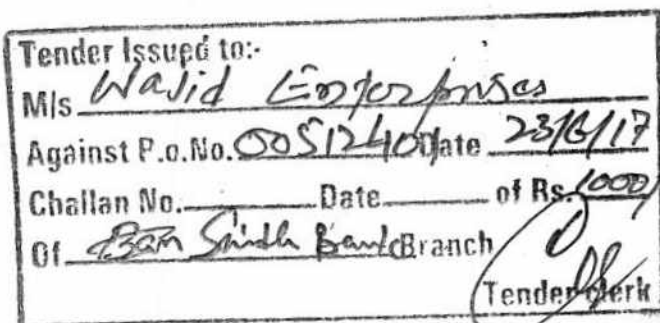 Tender Issued to:-
M/s Wajid Enterprises
Against P.o.No. 00512404 Date 23/6/17
Challan No. Date of Rs. 1000/
Of Sindh Bank Branch
Tender Clerk